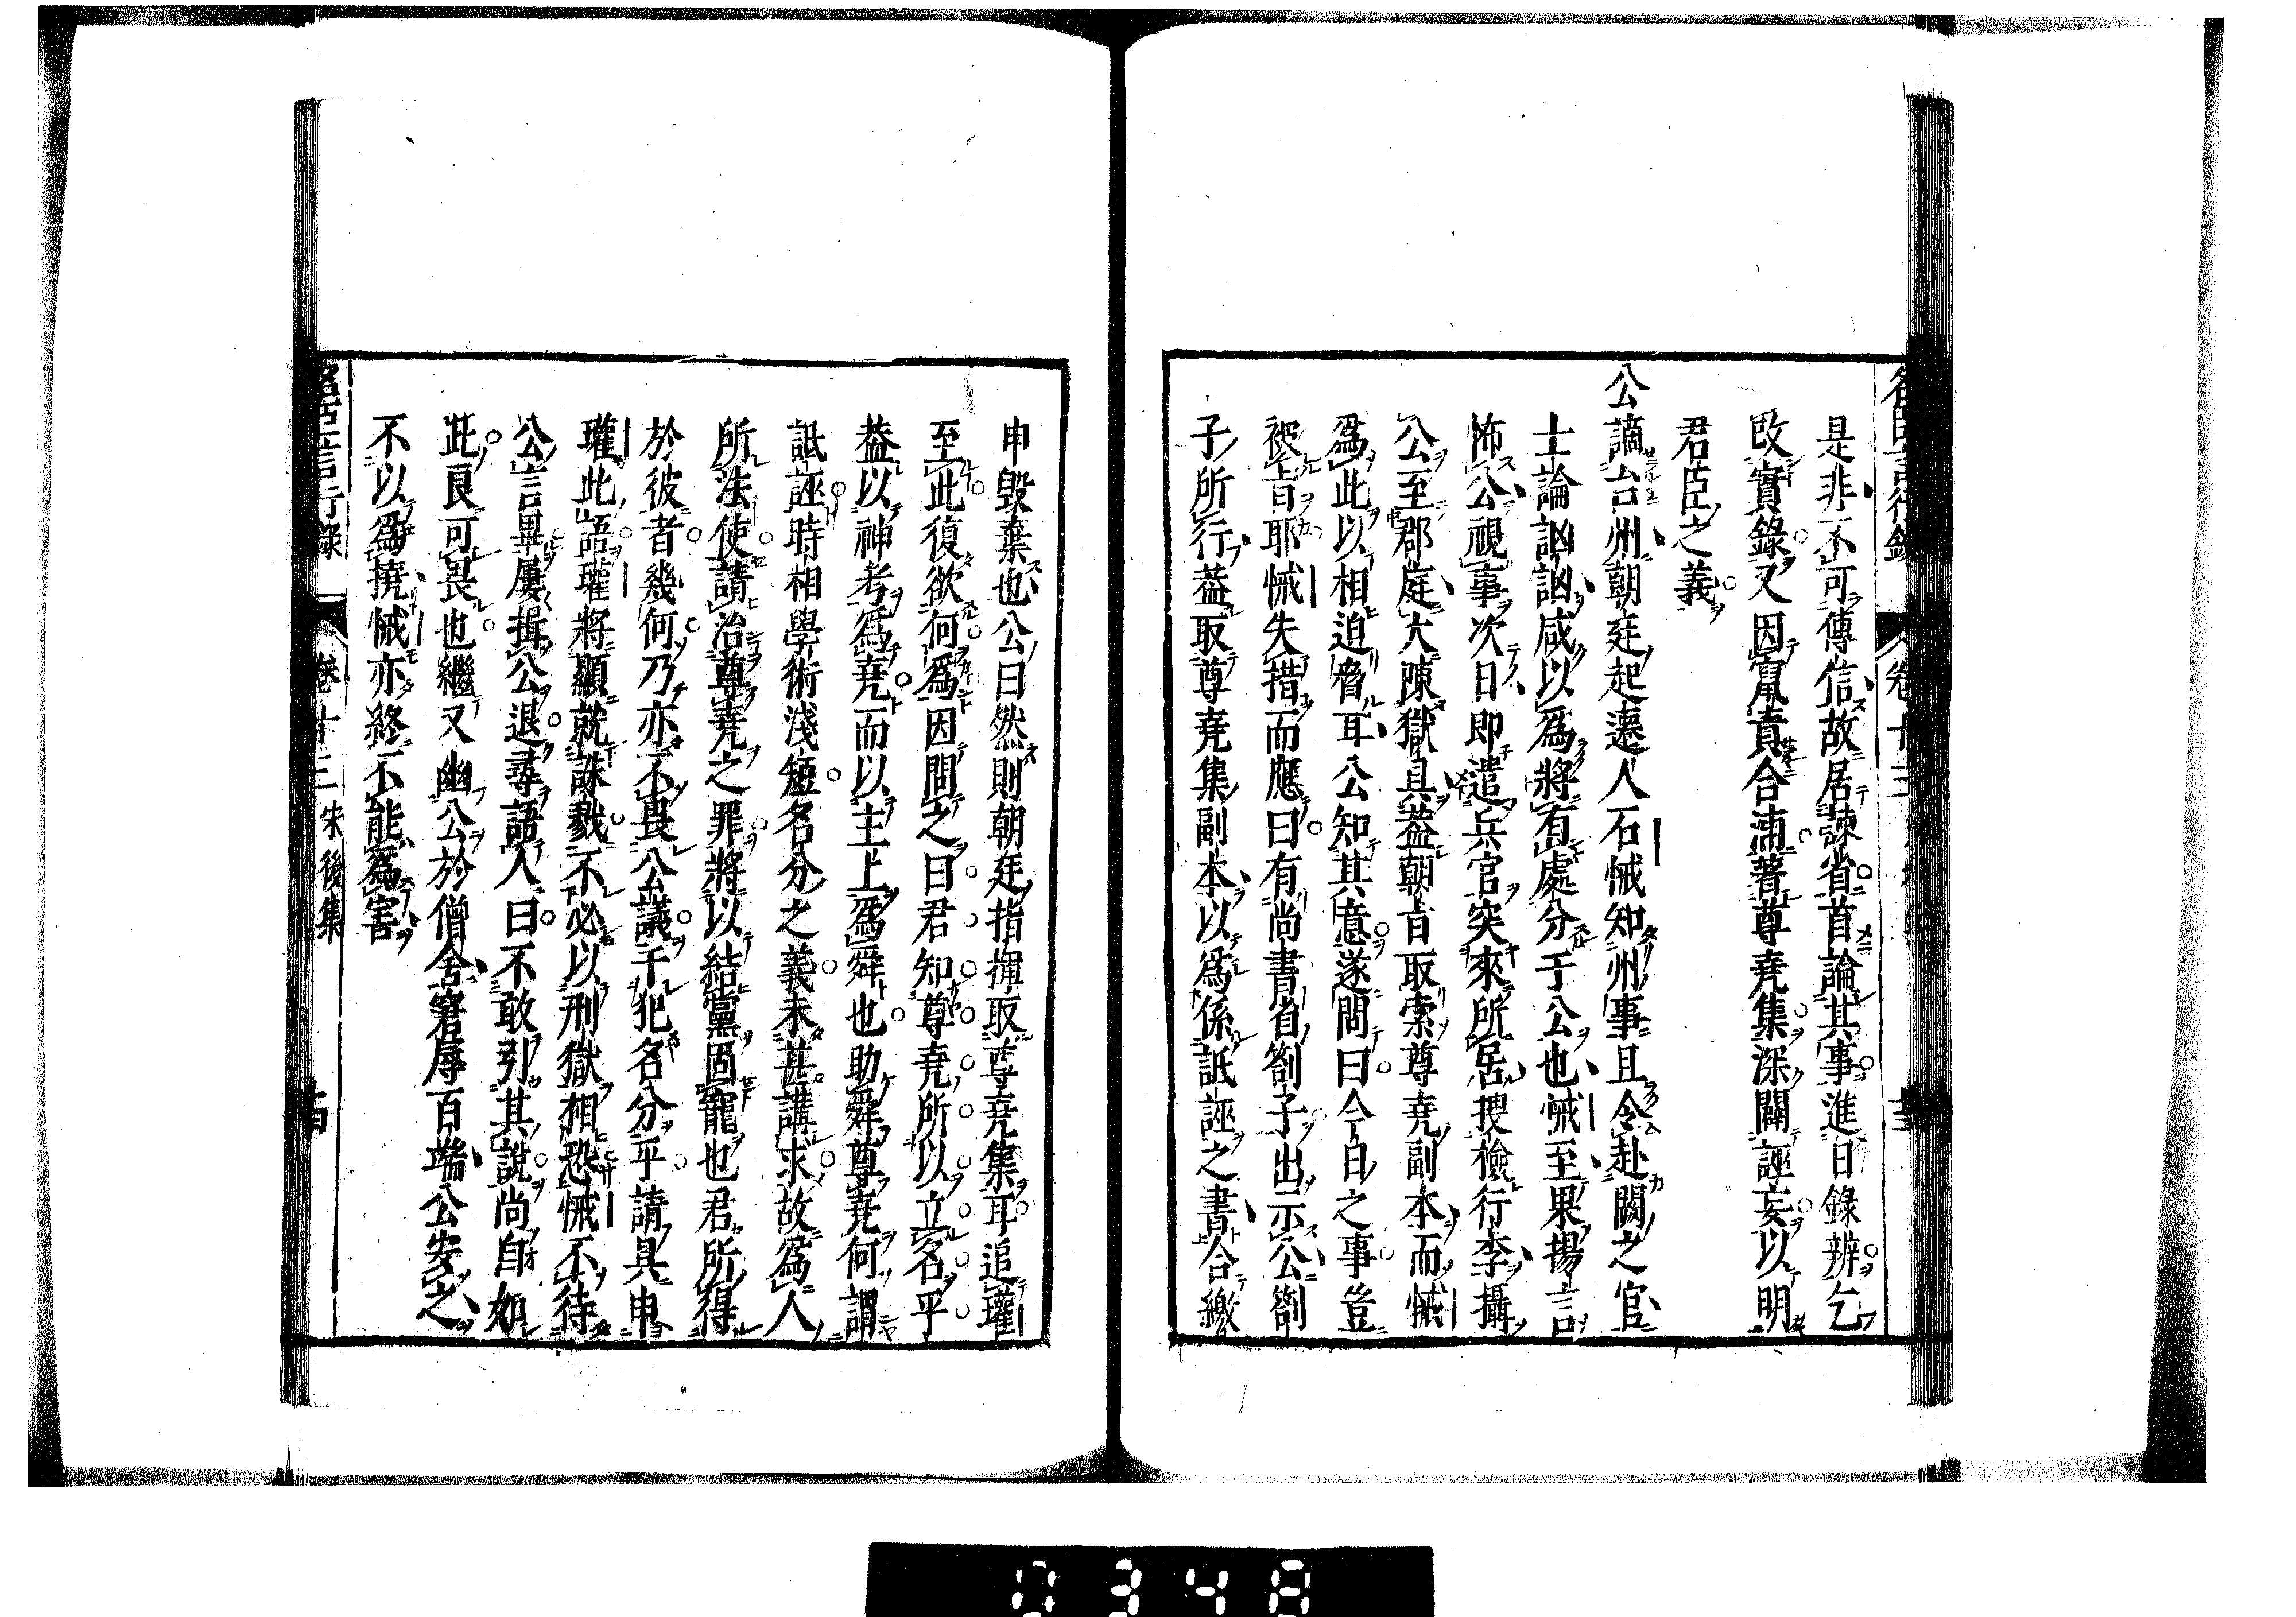 是非不可傳信故居諫省首論其事進日錄辨乞
改實錄又因竄責合浦著尊堯集深闢誣妄以明
君臣之義
公謫台州朝廷起遷人石悈知州事且令赴闕之官
士論訩訩咸以爲將有處分于公也悈至果揚言
怖公視事次日即遣兵官突來所居搜檢行李攝
公至郡庭大陳獄具葢朝旨取索尊堯副本而悈
爲此以相迫脅耳公知其意遂問曰今日之事豈
被旨耶悈失措而應曰有尚書省劄子出示公劄
子所行葢取尊堯集副本以爲係詆誣之書合繳
申毀棄也公曰然則朝廷指揮取尊堯集耳追瓘
至此復欲何爲因問之曰君知尊堯所以立名乎
葢以神考爲堯而以主上爲舜也助舜尊堯何謂
詆誣時相學術淺短名分之義未甚講求故爲人
所法使請治尊堯之罪將以結黨固寵也君所得
於彼者幾何乃亦不畏公議干犯名分乎請具申
瓘此語瓘將顯就誅戮不必以刑獄相恐悈不待
公言畢屢揖公退尋語人曰不敢引其說尚自如
此良可畏也繼又幽公於僧舍窘辱百端公安之
不以爲撓悈亦終不能爲害
名臣言行錄 卷十三 宋後集 十四
0348